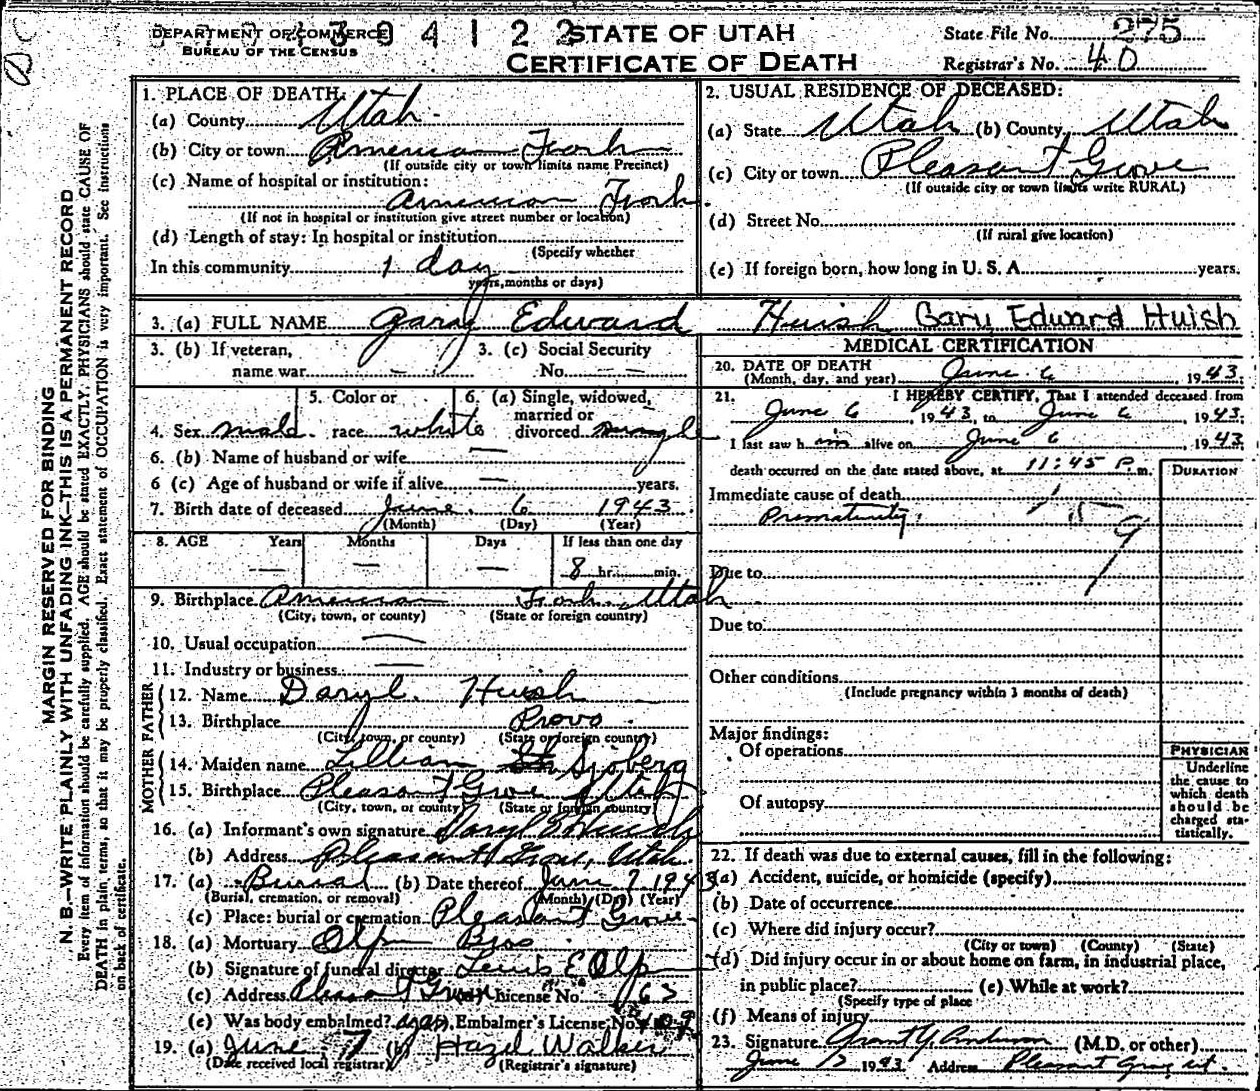 DEPARTMENT OF COMMERCE
BUREAU OF THE CENSUS
4 1 2 2
STATE OF UTAH
CERTIFICATE OF DEATH
State File No. 275
Registrar's No. 40
MARGIN RESERVED FOR BINDING
N. B.—WRITE PLAINLY WITH UNFADING INK—THIS IS A PERMANENT RECORD
Every item of information should be carefully supplied. AGE should be stated EXACTLY. PHYSICIANS should state CAUSE OF
DEATH in plain terms, so that it may be properly classified. Exact statement of OCCUPATION is very important. See instructions
on back of certificate.
1. PLACE OF DEATH:
(a) County Utah
(b) City or town American Fork
(If outside city or town limits name Precinct)
(c) Name of hospital or institution:
American Fork
(If not in hospital or institution give street number or location)
(d) Length of stay: In hospital or institution
(Specify whether
In this community 1 day
years, months or days)
2. USUAL RESIDENCE OF DECEASED:
(a) State Utah (b) County Utah
(c) City or town Pleasant Grove
(If outside city or town limits write RURAL)
(d) Street No.
(If rural give location)
(e) If foreign born, how long in U. S. A. years.
3. (a) FULL NAME Gary Edward Huish Gary Edward Huish
3. (b) If veteran,
name war —
3. (c) Social Security
No. — —
4. Sex male
5. Color or
race white
6. (a) Single, widowed,
married or
divorced single
6. (b) Name of husband or wife —
6 (c) Age of husband or wife if alive — years.
7. Birth date of deceased June 6 1943
(Month) (Day) (Year)
8. AGE Years Months Days If less than one day
— — — 8 hr. min.
9. Birthplace American Fork Utah
(City, town, or county) (State or foreign country)
10. Usual occupation —
11. Industry or business —
FATHER
12. Name Daryl Huish
13. Birthplace Provo
(City, town, or county) (State or foreign country)
MOTHER
14. Maiden name Lillian Sjoberg
15. Birthplace Pleasant Grove Utah
(City, town, or county) (State or foreign country)
16. (a) Informant's own signature Daryl Huish
(b) Address Pleasant Grove, Utah
17. (a) Burial (b) Date thereof June 7 1943
(Burial, cremation, or removal) (Month) (Day) (Year)
(c) Place: burial or cremation Pleasant Grove
18. (a) Mortuary Olpin Bros
(b) Signature of funeral director Lewis E Olpin
(c) Address Pleasant Grove License No.
(e) Was body embalmed? Embalmer's License No.
19. (a) June 7 (b) Hazel Walker
(Date received local registrar) (Registrar's signature)
MEDICAL CERTIFICATION
20. DATE OF DEATH
(Month, day, and year) June 6, 1943
21. I HEREBY CERTIFY, That I attended deceased from
June 6, 1943, to June 6, 1943.
I last saw him alive on June 6 1943
death occurred on the date stated above, at 11:45 P.m.
DURATION
Immediate cause of death
Prematurity.
159
Due to
Due to
Other conditions
(Include pregnancy within 3 months of death)
Major findings:
Of operations
Of autopsy
PHYSICIAN
Underline
the cause to
which death
should be
charged sta-
tistically.
22. If death was due to external causes, fill in the following:
(a) Accident, suicide, or homicide (specify)
(b) Date of occurrence
(c) Where did injury occur?
(City or town) (County) (State)
(d) Did injury occur in or about home on farm, in industrial place,
in public place? (e) While at work?
(Specify type of place
(f) Means of injury
23. Signature Grant Y. Anderson (M.D. or other)
June 7 1943 Address Pleasant Grove Ut.